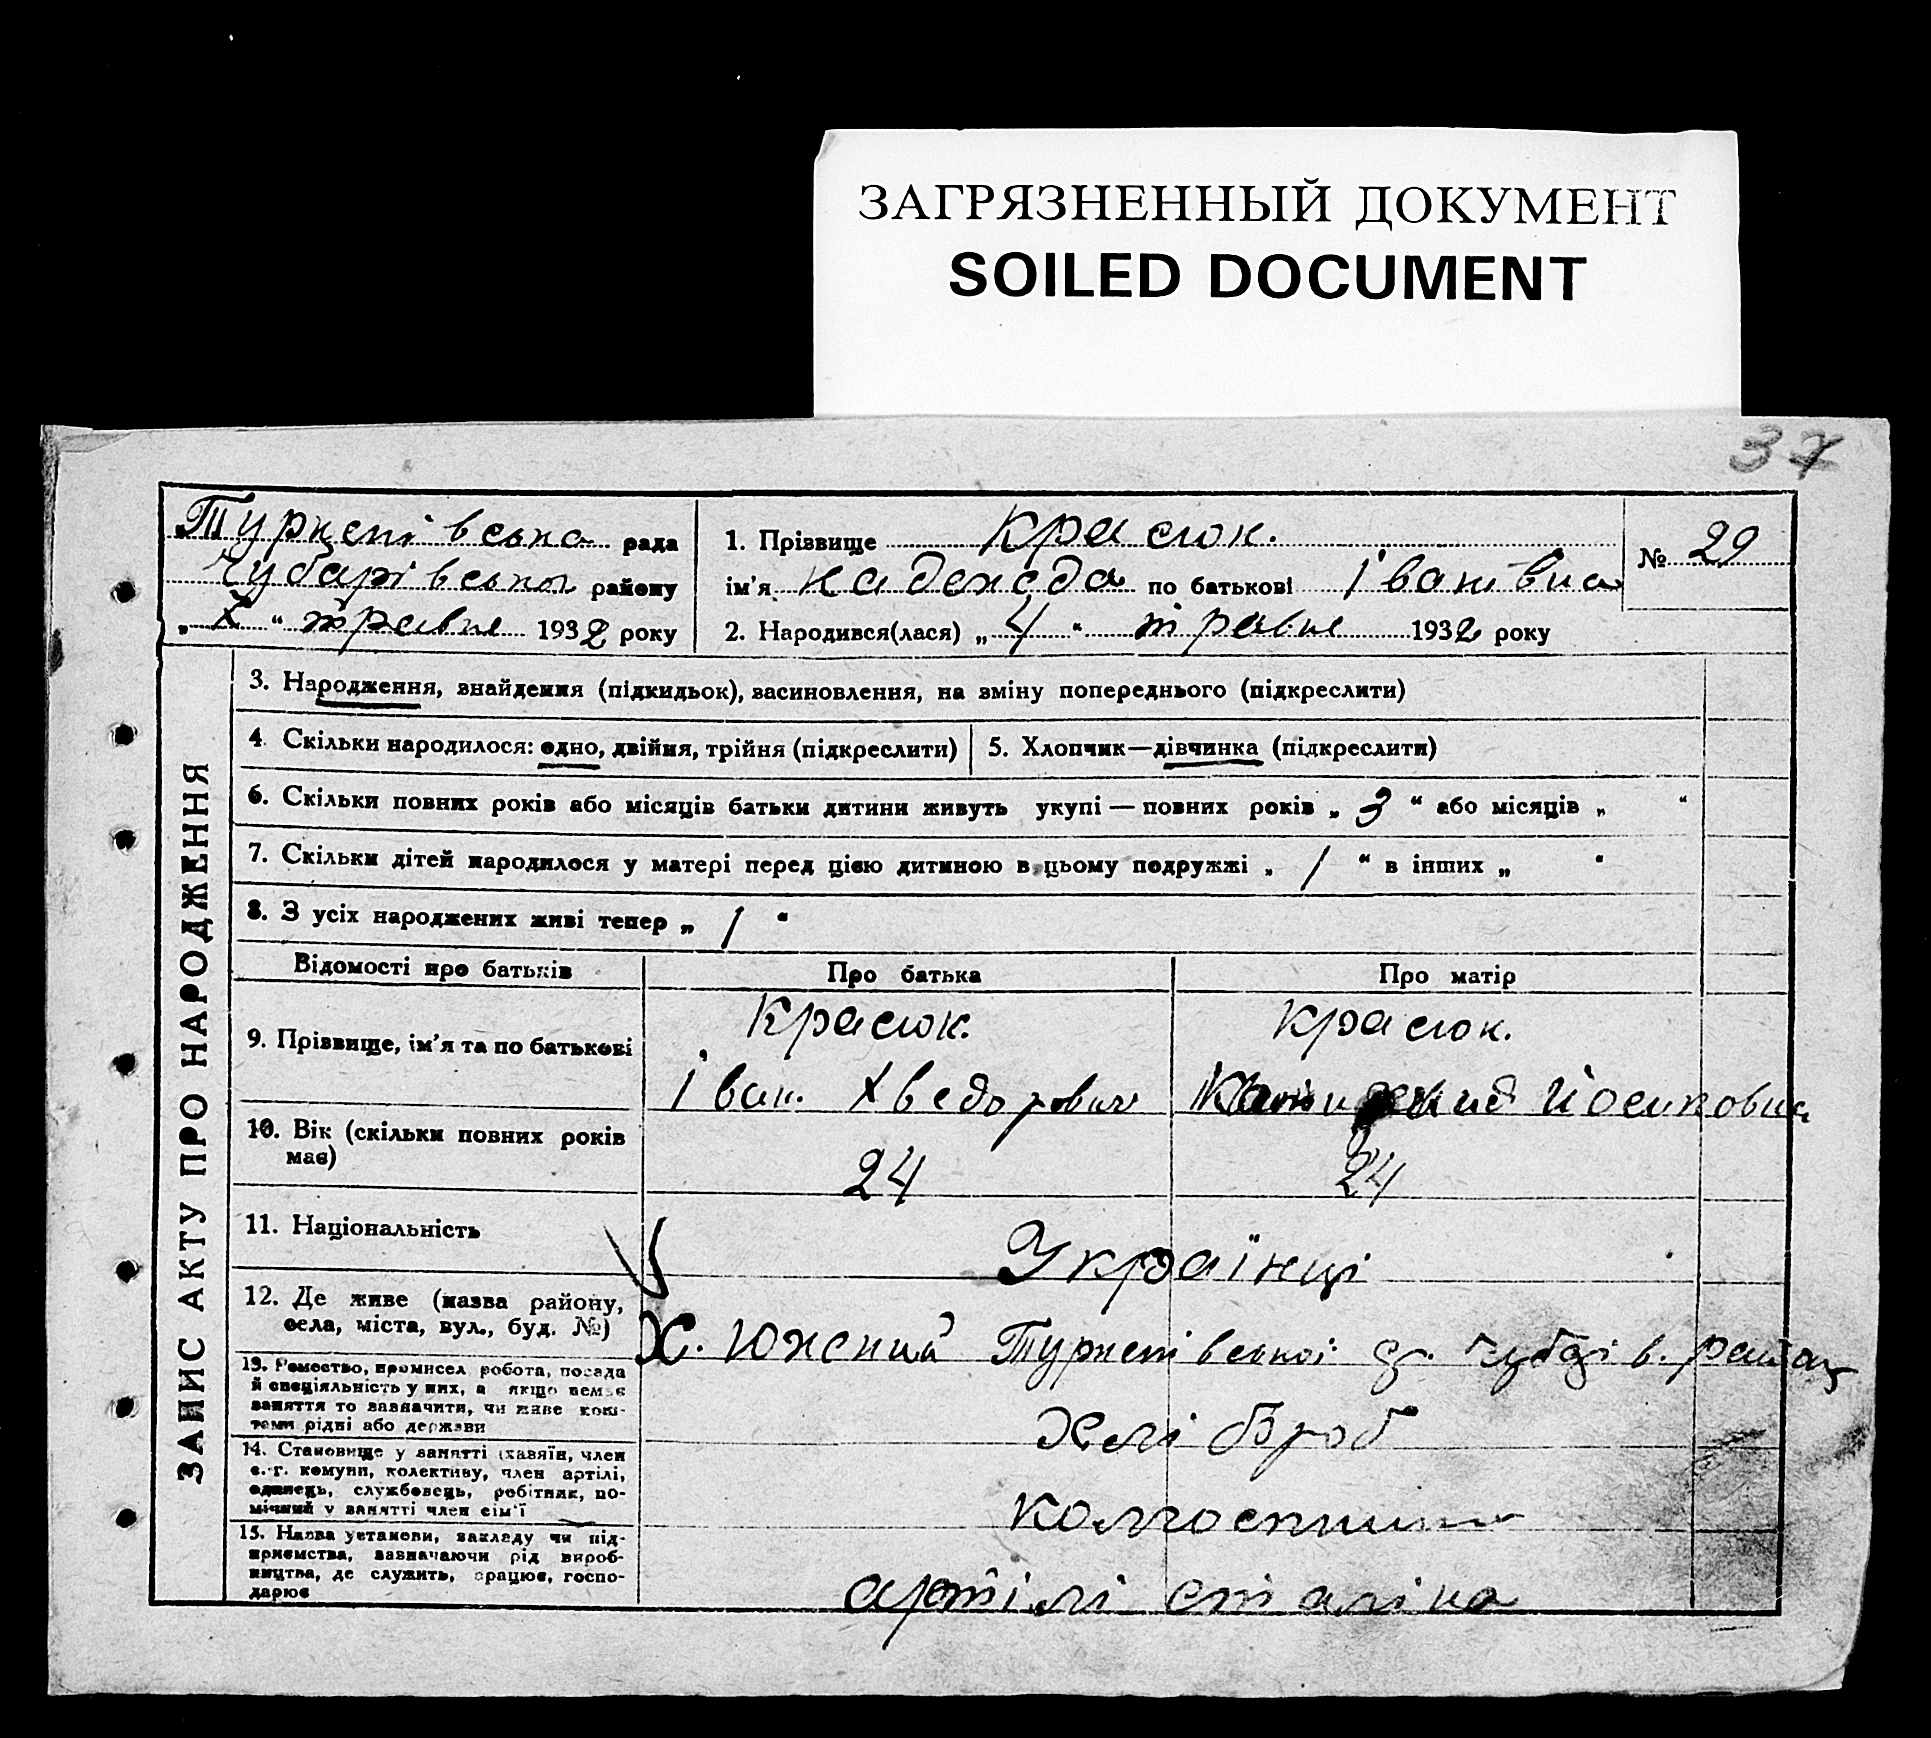 ЗАГРЯЗНЕННЫЙ ДОКУМЕНТ
SOILED DOCUMENT
37
Туркенівська рада
Чубарівського району
„ X “ травня 1932 року
1. Прізвище Красюк.
ім'я Надежда по батькові Іванівна
2. Народився(лася) „ 4 “ травня 1932 року
№ 29
ЗАПИС АКТУ ПРО НАРОДЖЕННЯ
3. Народження, знайдення (підкидьок), засиновлення, на зміну попереднього (підкреслити)
4. Скільки народилося: одно, двійня, трійня (підкреслити)
5. Хлопчик—дівчинка (підкреслити)
6. Скільки повних років або місяців батьки дитини живуть укупі — повних років „ 3 “ або місяців „ “
7. Скільки дітей народилося у матері перед цією дитиною в цьому подружжі „ 1 “ в інших „ “
8. З усіх народжених живі тепер „ 1 “
Відомості про батьків
Про батька
Про матір
9. Прізвище, ім'я та по батькові
Красюк.
Іван Хведорович
Красюк.
Йосиповна
10. Вік (скільки повних років
має)
24
24
11. Національність
Українці
12. Де живе (назва району,
села, міста, вул., буд. №)
Х. Южний
13. Ремество, промисел робота, посада
й спеціяльність у них, а якщо немає
заняття то зазначити, чи живе кош-
тами рідні або держави
Хлібороб
14. Становище у занятті (хазяїн, член
с.-г. комуни, колективу, член артілі,
одинець, службовець, робітник, по-
мічний у занятті член сім'ї
колгоспники
15. Назва установи, закладу чи під-
приємства, зазначаючи рід вироб-
ництва, де служить, працює, госпо-
дарює
артілі сталіна